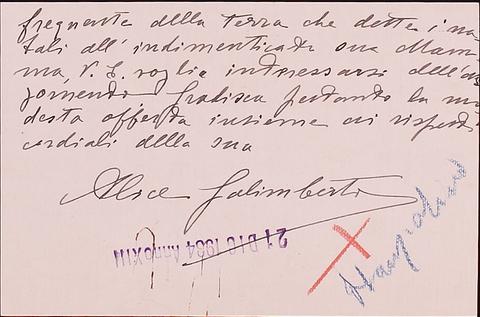 frequente della terra che dette i na-
tali all'indimenticata sua Mam-
ma, V. S. voglia interessarsi dell'ar-
gomento. Gradisca pertanto la mo-
desta offerta insieme ai rispetti
cordiali della sua
Alice Galimberti
21 DIC 1934 ANNO XIII